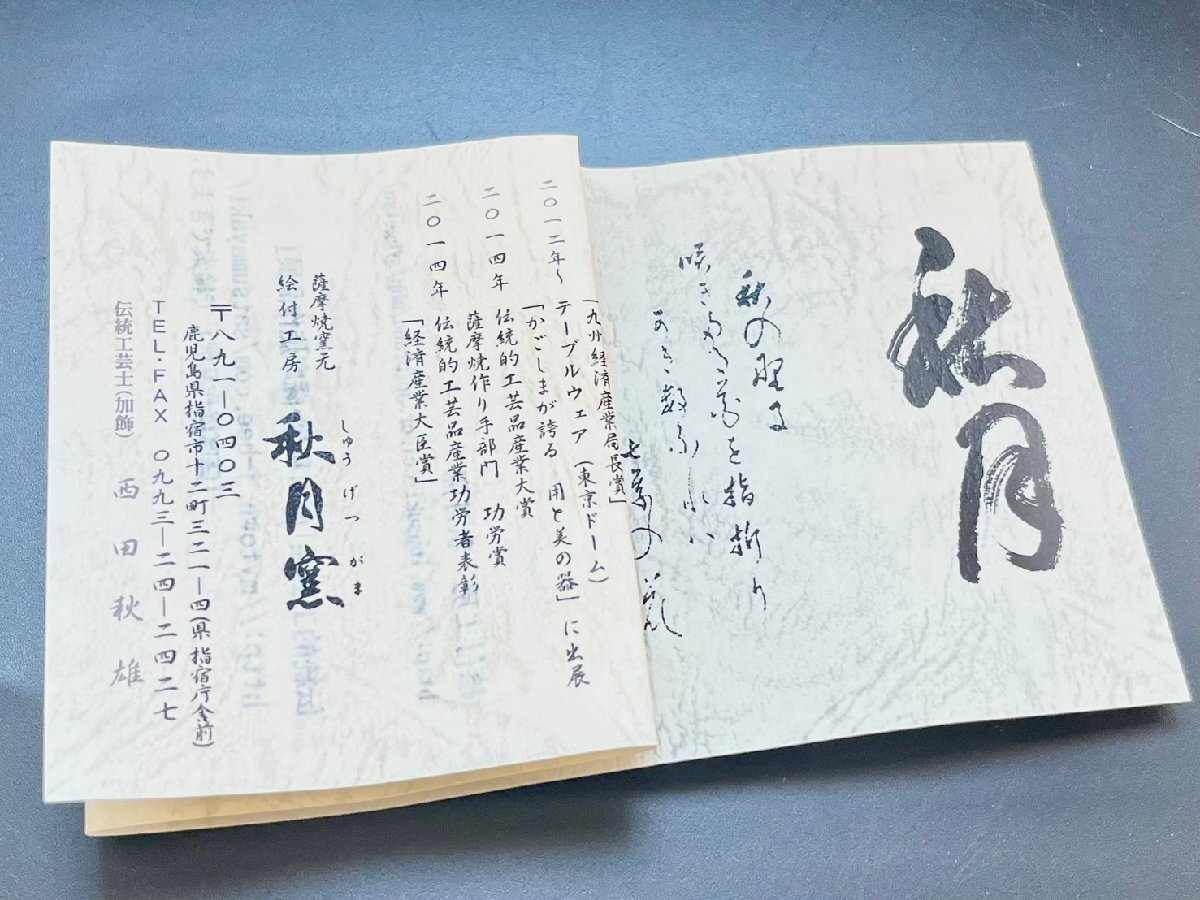 秋月
秋の野に
咲きたる花を指折り
かき数ふれハ
の花
(九州経済産業局長賞)
二〇一二年～ テーブルウェア(東京ドーム)
「かごしまが誇る 用と美の器」に出展
二〇一四年 伝統的工芸品産業大賞
薩摩焼作り手部門 功労賞
二〇一四年 伝統的工芸品産業功労者表彰
「経済産業大臣賞」
薩摩焼窯元
絵付工房 秋月窯
しゅう げつ がま
〒八九一ー〇四〇三
鹿児島県指宿市十二町三二一ー四(県指宿庁舎前)
TEL・FAX 〇九九三ー二四ー二四二七
伝統工芸士(加飾) 西田秋雄